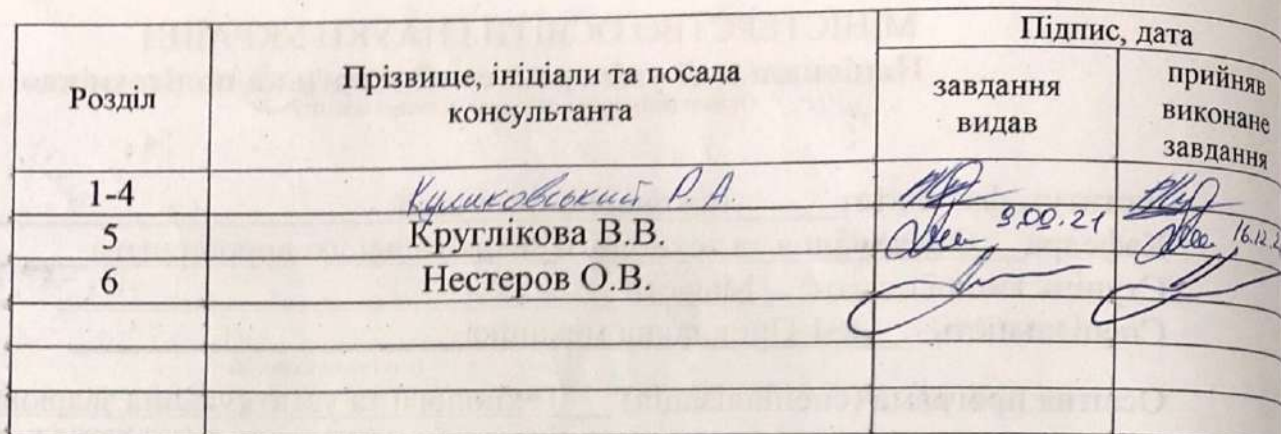 Розділ
Прізвище, ініціали та посада
консультанта
Підпис, дата
завдання
видав
прийняв
виконане
завдання
1-4 Куликовський Р. А.
5 Круглікова В.В. 9.09.21 16.12.2
6 Нестеров О.В.